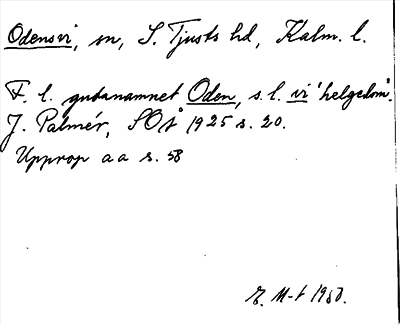 Odensvi, sn, S. Tjusts hd, Kalm. l.
F. l. gudanamnet Oden, s. l. vi 'helgedom'.
J. Palmér, SOÅ 1925 s. 20.
Upprop a a s. 58
E. M-t 1950.